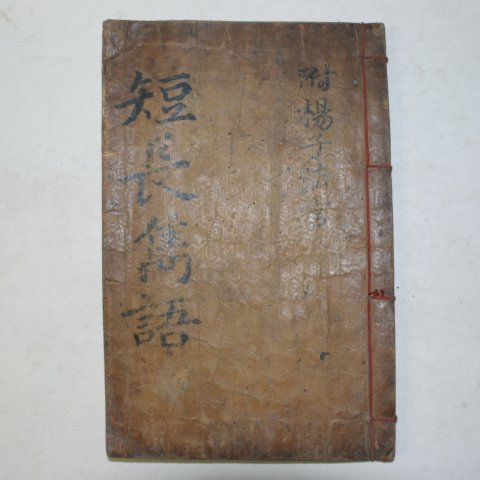 附楊子法言
短長雋語